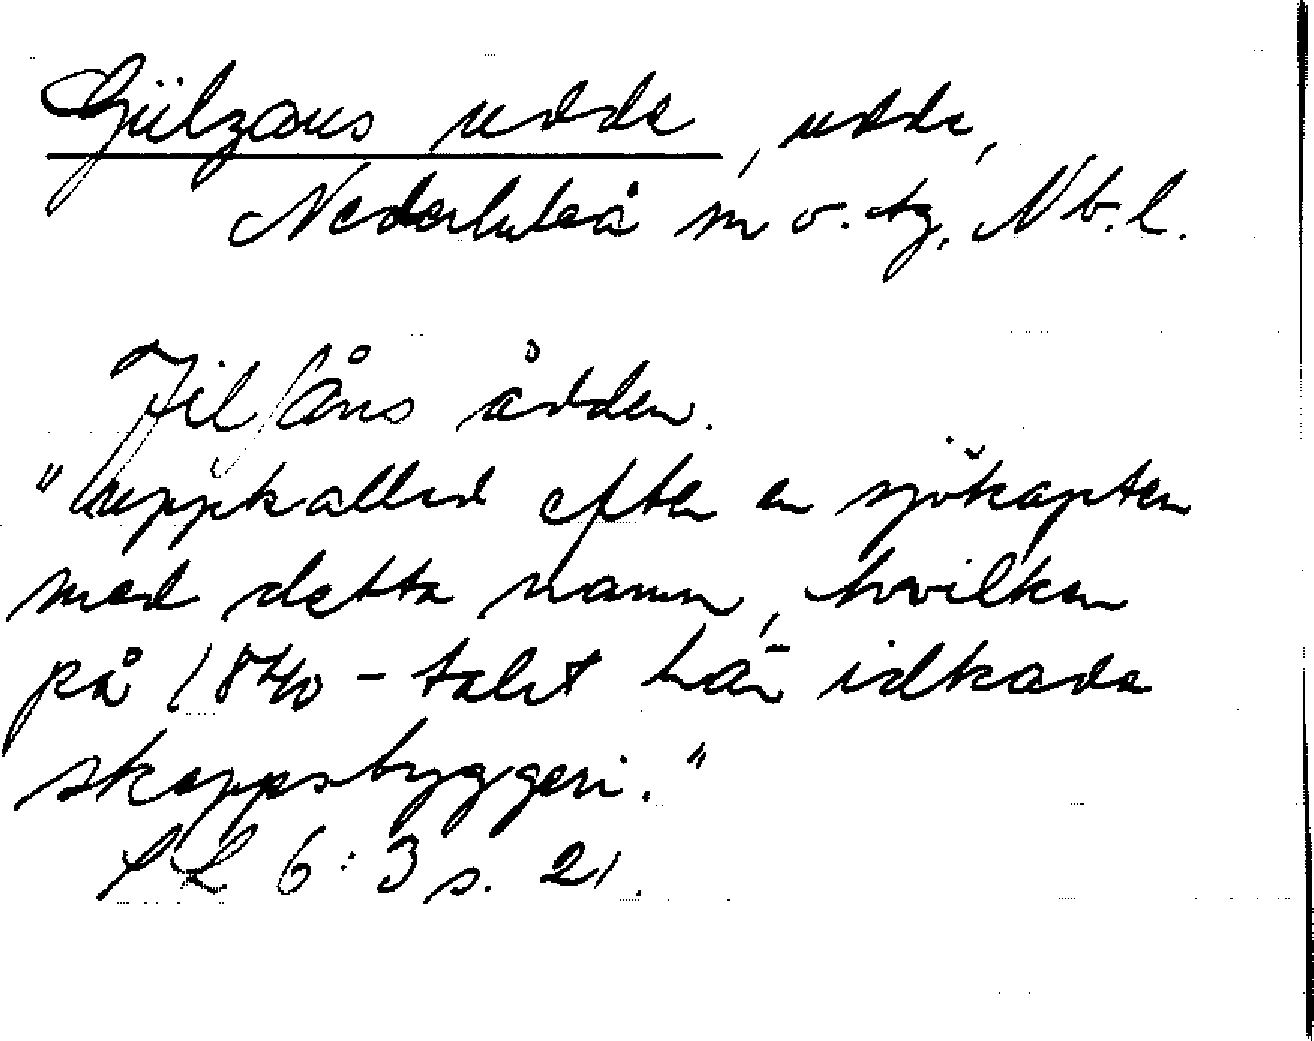 Gülzaus udde, udde,
Nederluleå sn o. tg, Nb. l.
Jilsåns ådden.
"uppkallad efter en sjökapten
med detta namn, hvilken
på 1840-talet här idkade
skeppsbyggeri."
SL 6:3 s. 21.